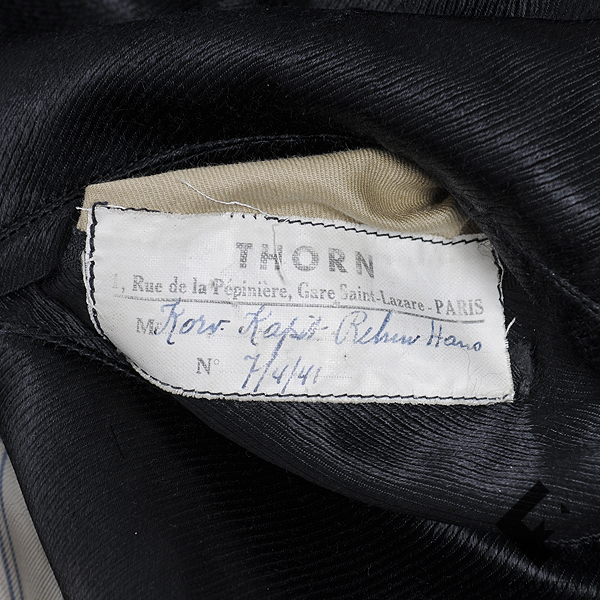 THORN
1, Rue de la Pépinière, Gare Saint-Lazare - PARIS
M. Korv Kapit Rehm Hans
N° 7/4/41